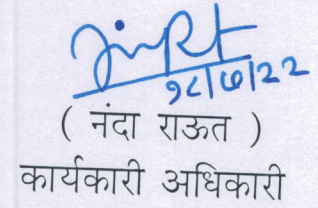 १८/७/२२
( नंदा राऊत )
कार्यकारी अधिकारी